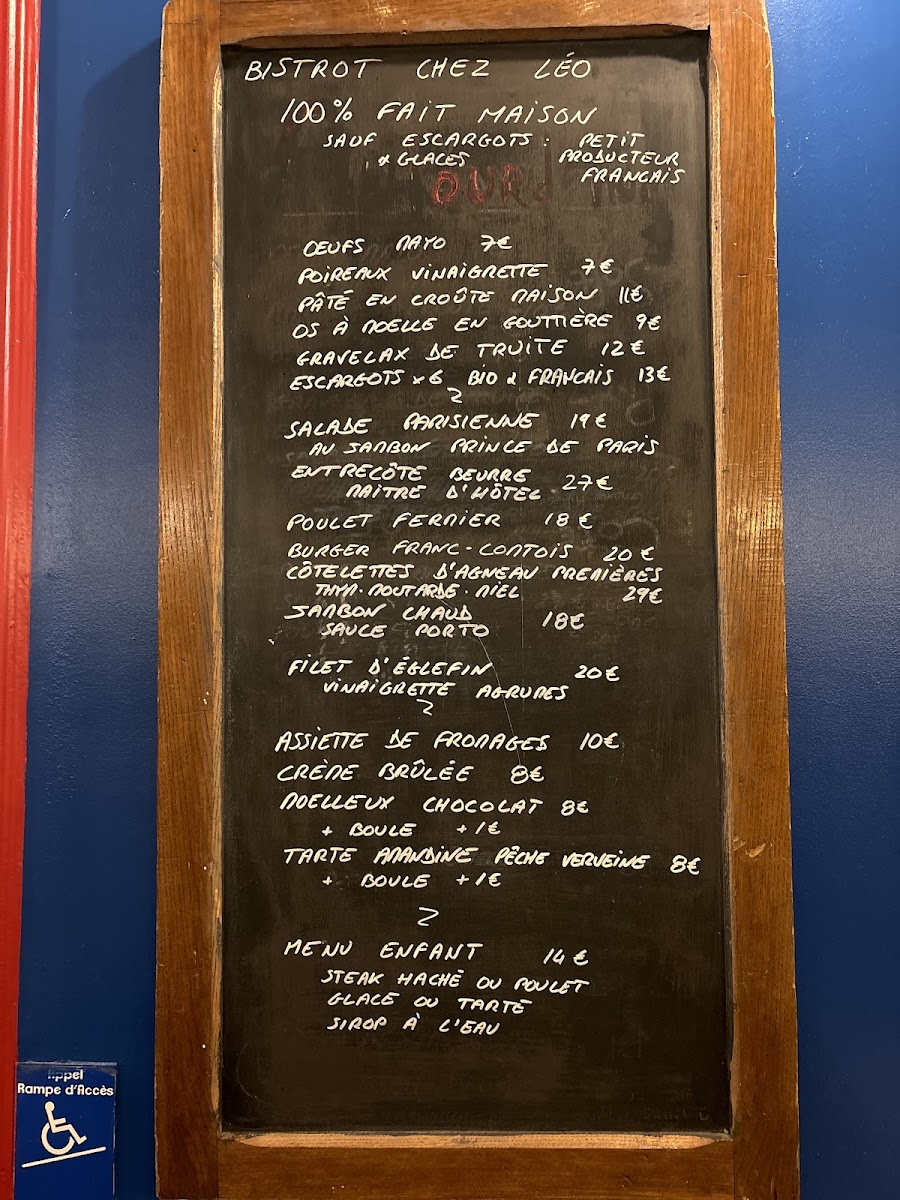 BISTROT CHEZ LÉO
100% FAIT MAISON
SAUF ESCARGOTS : PETIT
& GLACES PRODUCTEUR
FRANCAIS
OEUFS MAYO 7€
POIREAUX VINAIGRETTE 7€
PÂTÉ EN CROÛTE MAISON 11€
OS À MOELLE EN GOUTTIÈRE 9€
GRAVELAX DE TRUITE 12€
ESCARGOTS x 6 BIO & FRANCAIS 13€
SALADE PARISIENNE 19€
AU JAMBON PRINCE DE PARIS
ENTRECÔTE BEURRE
MAITRE D'HÔTEL 27€
POULET FERMIER 18€
BURGER FRANC-COMTOIS 20€
CÔTELETTES D'AGNEAU PREMIÈRES
THYM. MOUTARDE. MIEL 29€
JAMBON CHAUD
SAUCE PORTO 18€
FILET D'ÉGLEFIN 20€
VINAIGRETTE AGRUMES
ASSIETTE DE FROMAGES 10€
CRÈME BRÛLÉE 8€
MOELLEUX CHOCOLAT 8€
+ BOULE +1€
TARTE AMANDINE PÊCHE VERVEINE 8€
+ BOULE +1€
MENU ENFANT 14€
STEAK HACHÉ OU POULET
GLACE OU TARTE
SIROP À L'EAU
Appel
Rampe d'Accès